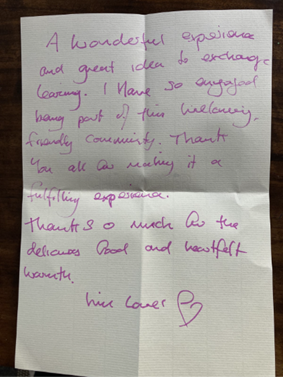 A wonderful experience
and great idea to exchange
learning. I have so enjoyed
being part of this welcoming,
friendly community. Thank
you all for making it a
fulfilling experience.
Thanks so much for the
delicious food and heartfelt
warmth.
love